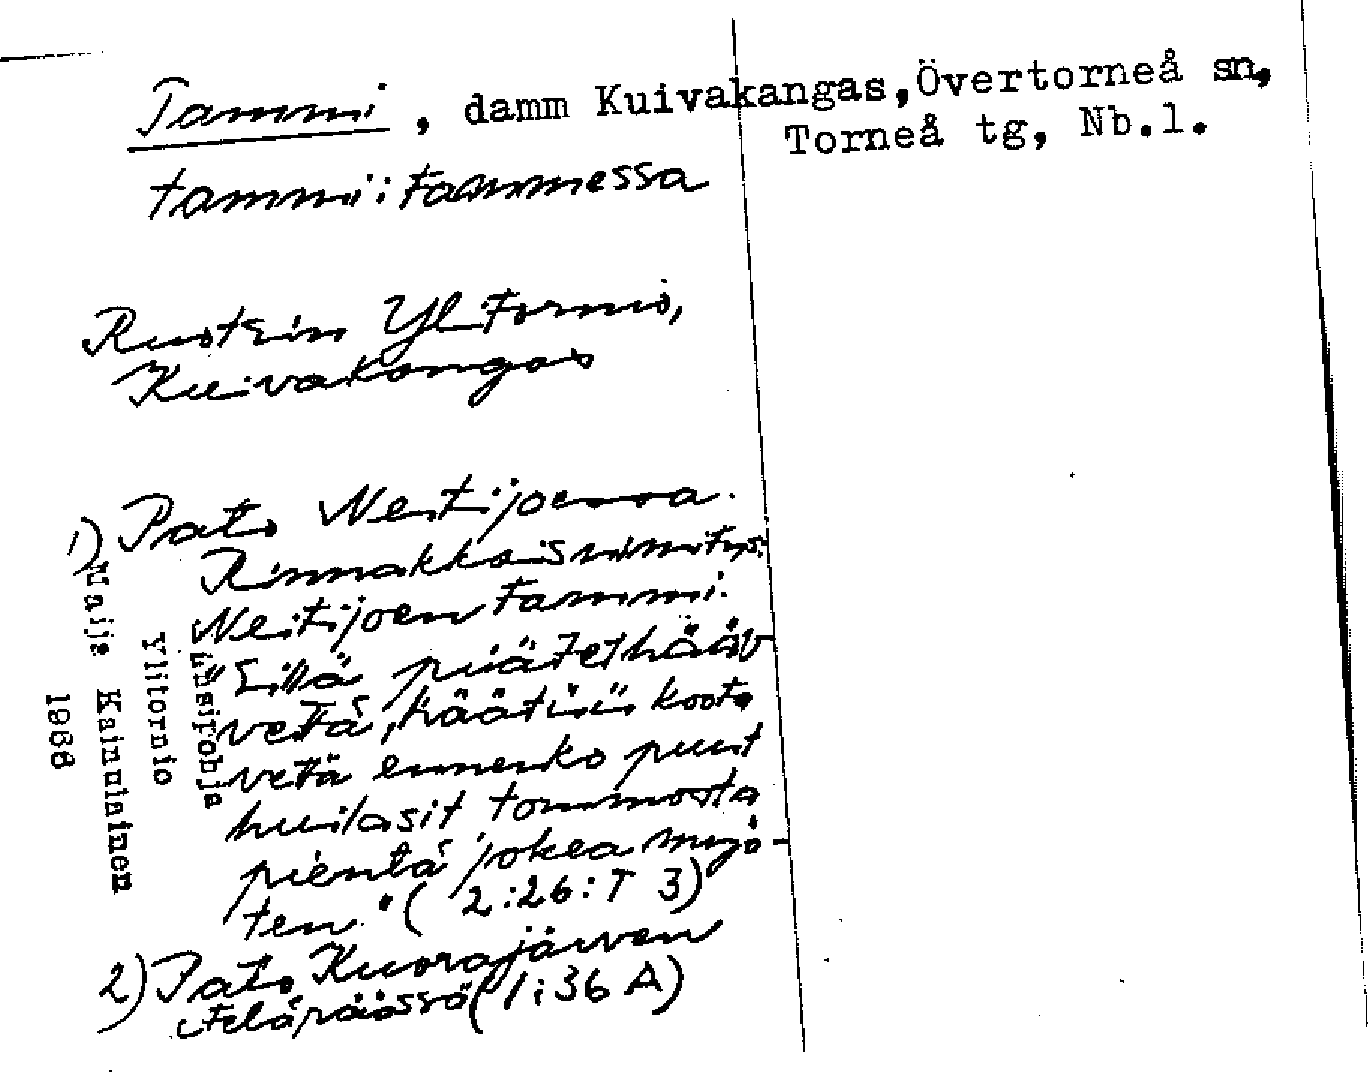 Tammi, damm Kuivakangas, Övertorneå sn,
Torneå tg, Nb.l.
tammi: tammessa
Ruotsin Ylitornio,
Kuivakangas
1) Pato Neitijoessa.
Rinnakkaisnimitys:
Neitijoen tammi.
"Sillä piätethään
vettä, häätii koota
vettä ennenko puut
huilasit tommosta
pientä jokea myö-
ten." (2:26:T 3)
2) Pato Kuorajärven
eteläpäässä (1:36 A)
Länsipohja
Ylitornio
Maija Kainulainen
1966